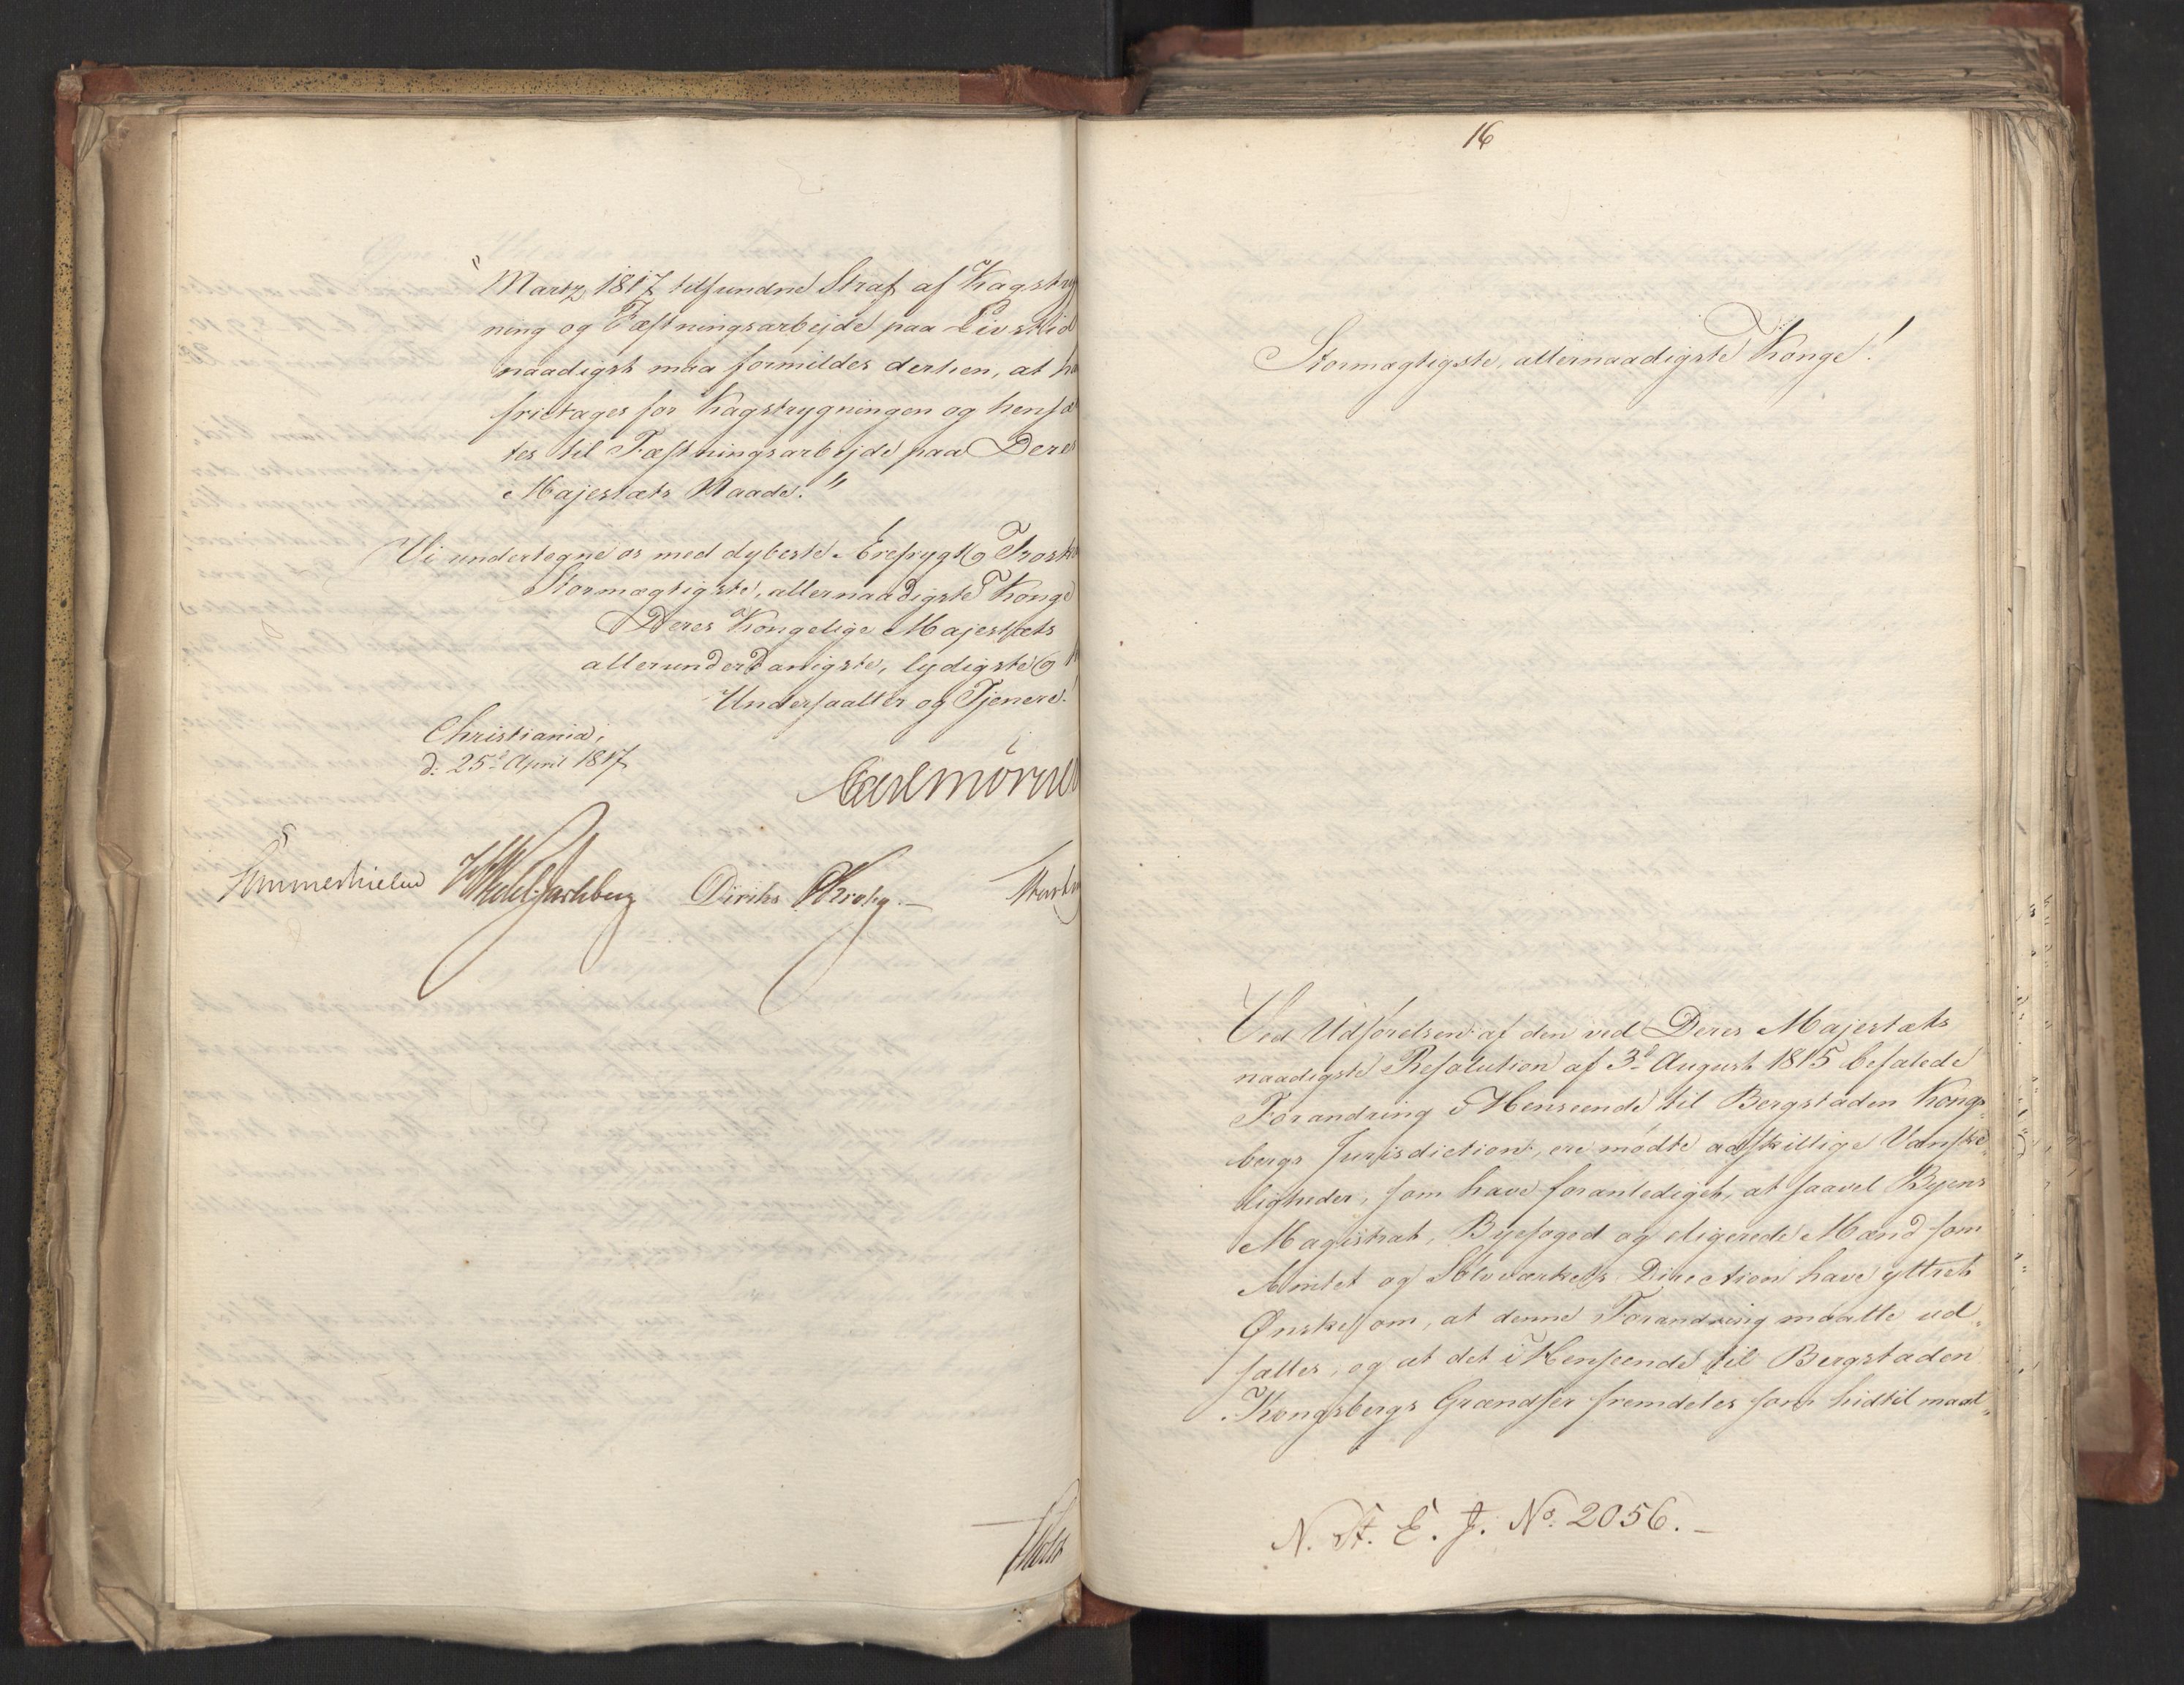 "Martz 1817 tilfundne Straf af Kagstryg
ning og Fæstningsarbejde paa Livstid
naadigst maa formildes derhen, at ha
fritages for Kagstrygningen og hensæt
tes til Fæstningsarbejde paa Deres
Majestæts Naade."
Vi undertegne os med dybeste Erefrygt og Troska
Stormægtigste, allernaadigste Konge
Deres Kongelige Majestæts
allerunderdanigste, lydigste og
Undersaatter og Tjenere.
Christiania,
d: 25d April 1817
Carl Mörner
Sommerhielm Wedel Jarlsberg Diriks Krohg.-
Holst
16
Stormægtigste, allernaadigste Konge!
Ved Udførelsen af den ved Deres Majestæts
naadigste Resolution af 3d August 1815 befalede
Forandring i Henseende til Bergstaden Kongs-
bergs Jurisdiction, ere mødte adskillige Vanske-
ligheder, som have foranlediget, at saavel Byens
Magistrat, Byefoged og eligerede Mænd som
Amtet og Sølvværkets Direction have yttret
Ønske om, at denne Forandring maatte ud-
sættes, og at det i Henseende til Bergstaden
Kongsbergs Grændser fremdeles som hidtil maat-
N. St. E. J. No. 2056.-